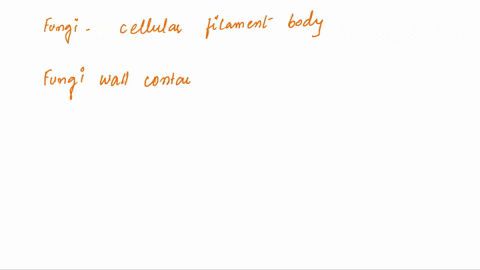 Fungi - cellular filament body
Fungi wall contai